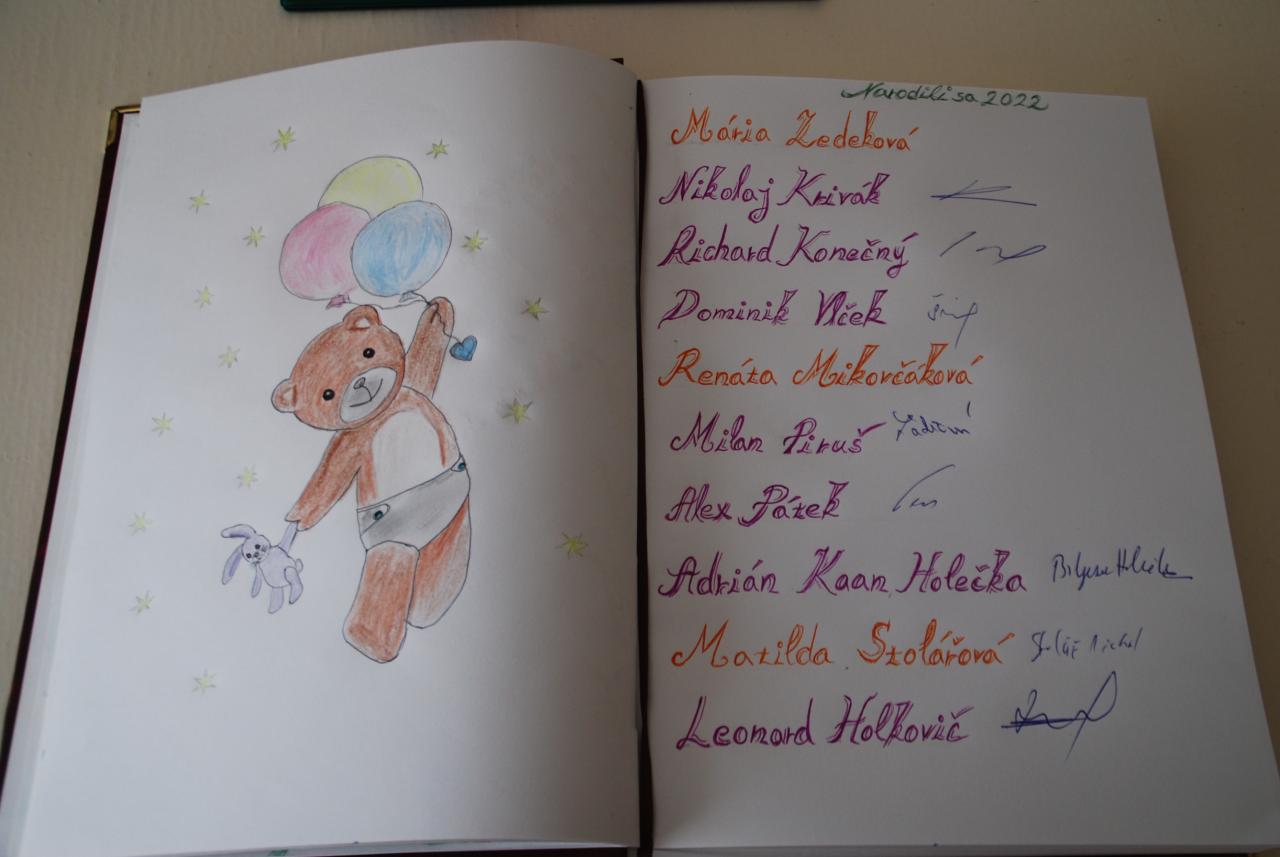 Narodili sa 2022
Mária Zedeková
Nikolaj Krivák
Richard Konečný
Dominik Vlček
Renáta Mikovčáková
Milan Piruš
Alex Pátek
Adrián Kaan Holečka
Matilda Stolářová
Leonard Holkovič